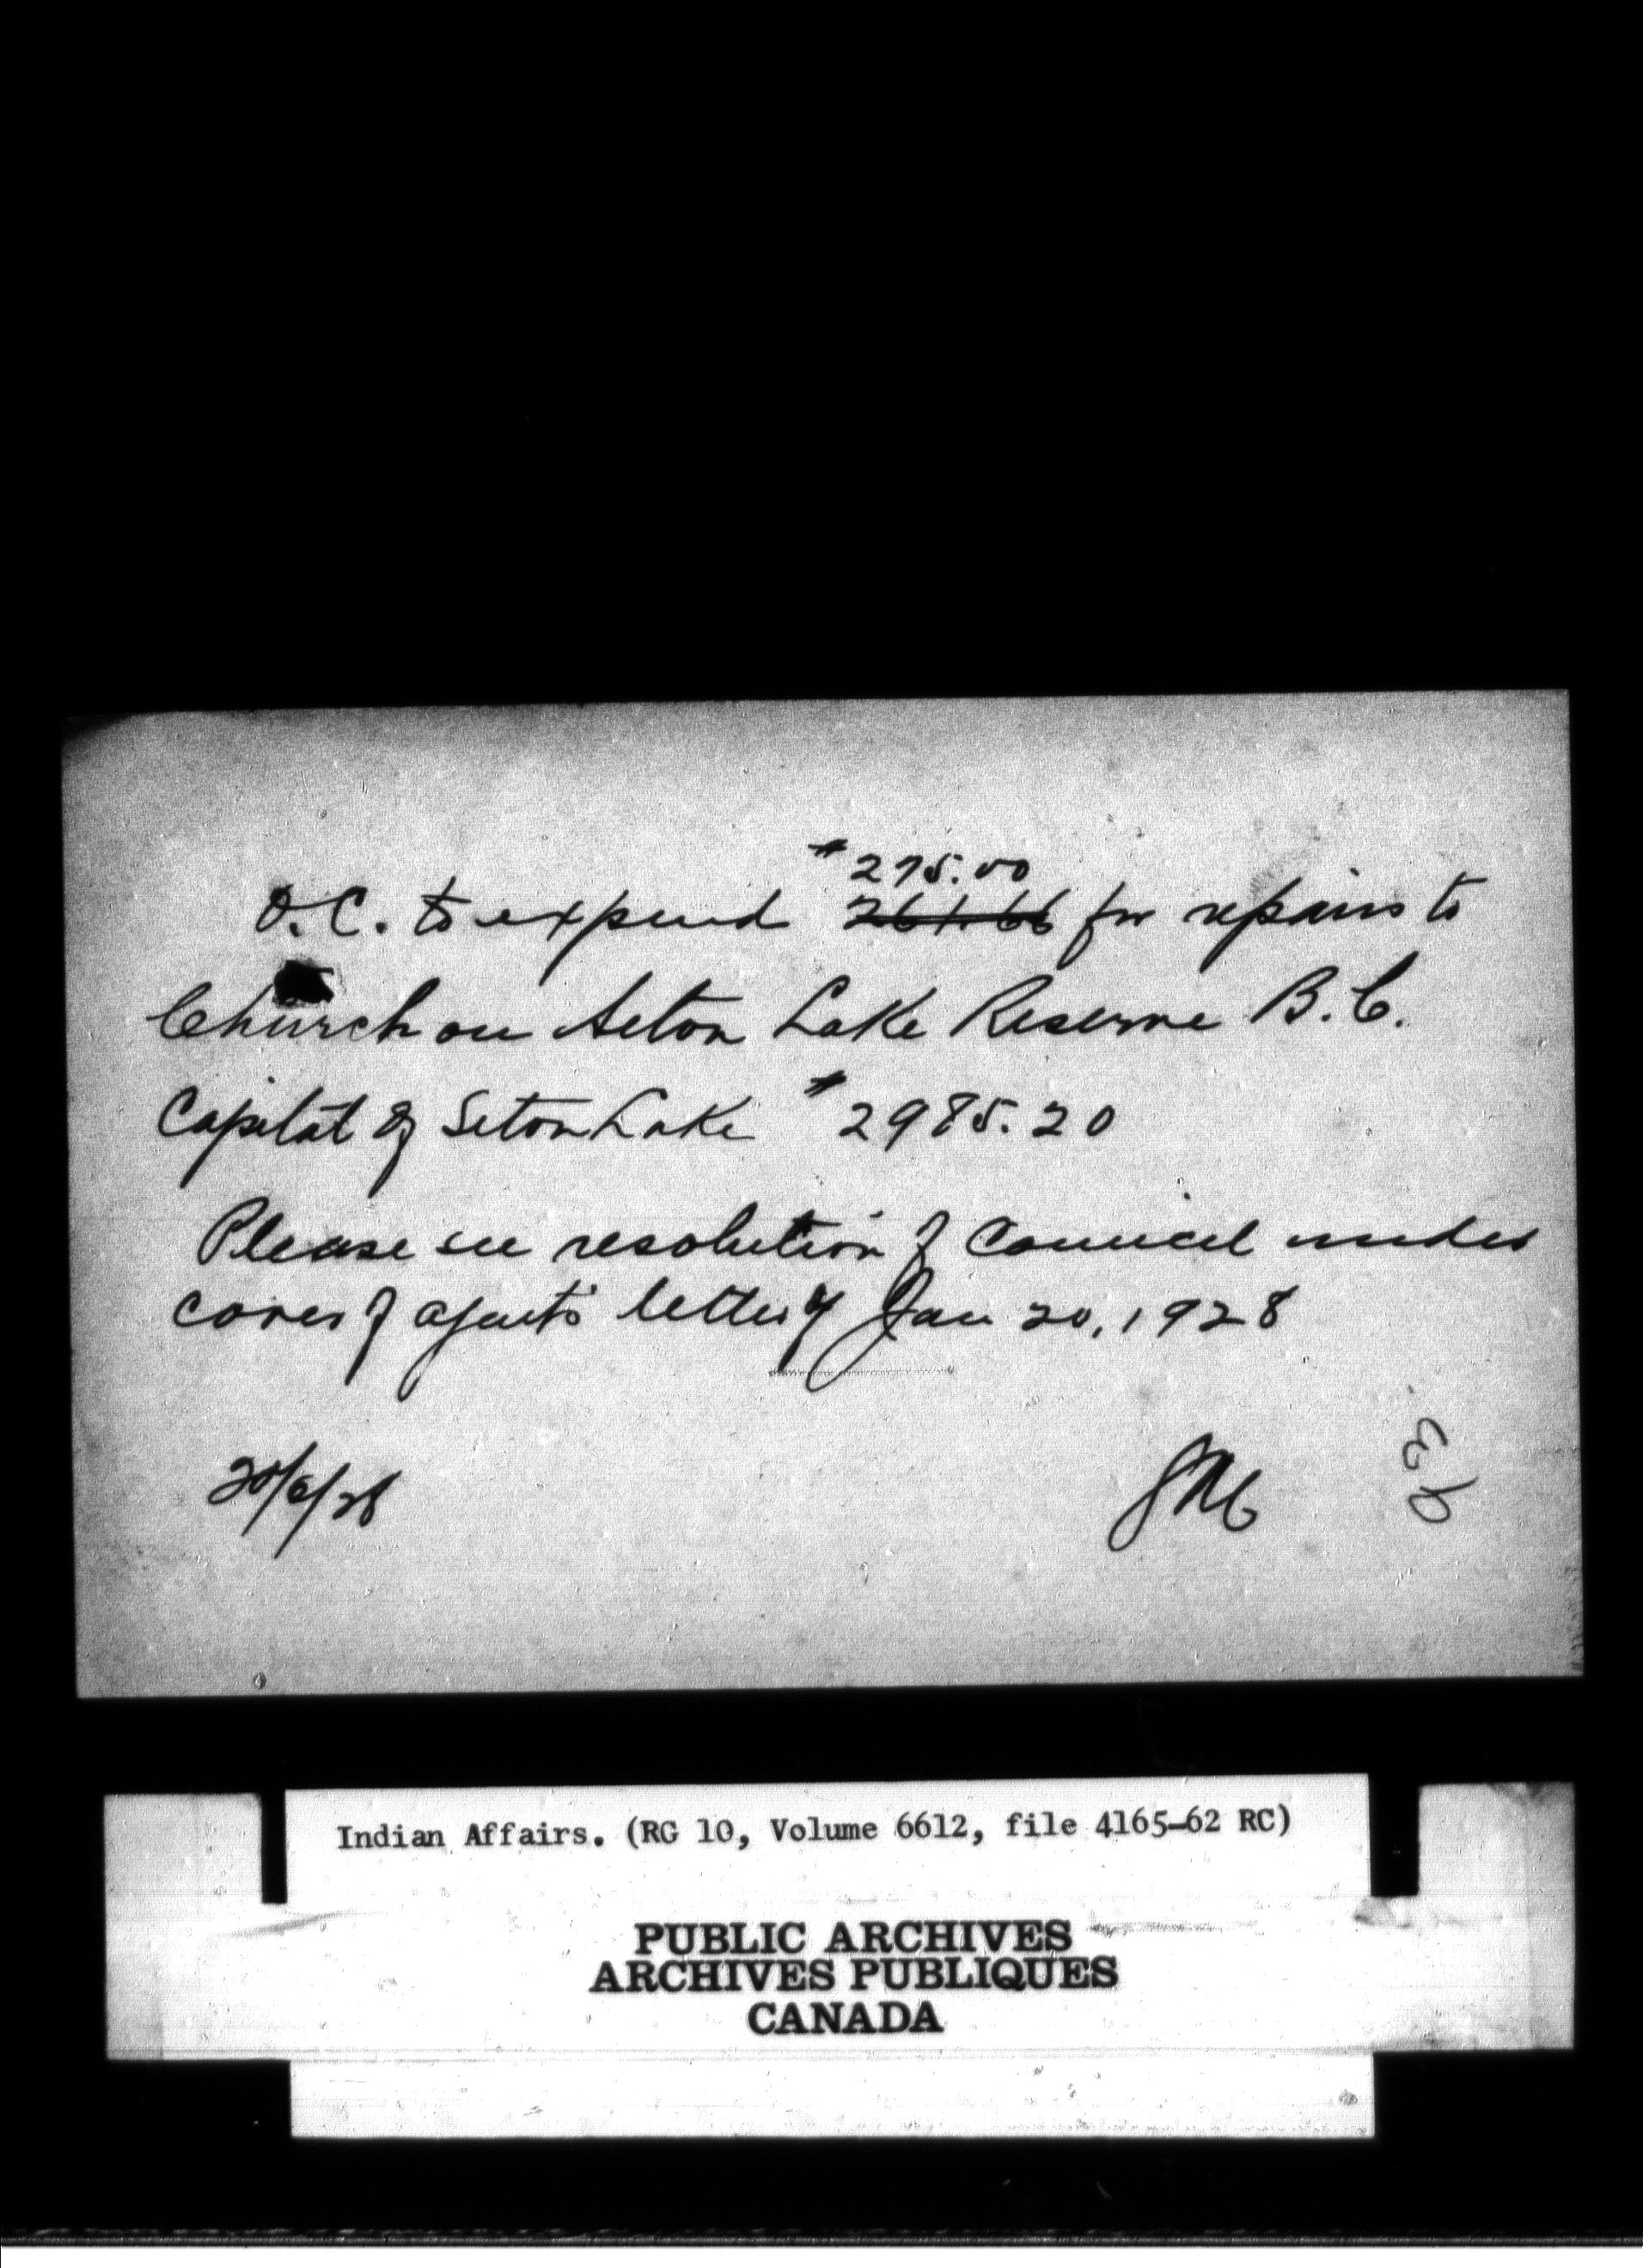 $275.00
O.C. to expend 261.66 for repairs to
Church on Seton Lake Reserve B.C.
Capital of Seton Lake $2985.20
Please see resolution of Council under
cover of agent's letter of Jan 20, 1928
20/6/28
Indian Affairs. (RG 10, Volume 6612, file 4165-62 RC)
PUBLIC ARCHIVES
ARCHIVES PUBLIQUES
CANADA